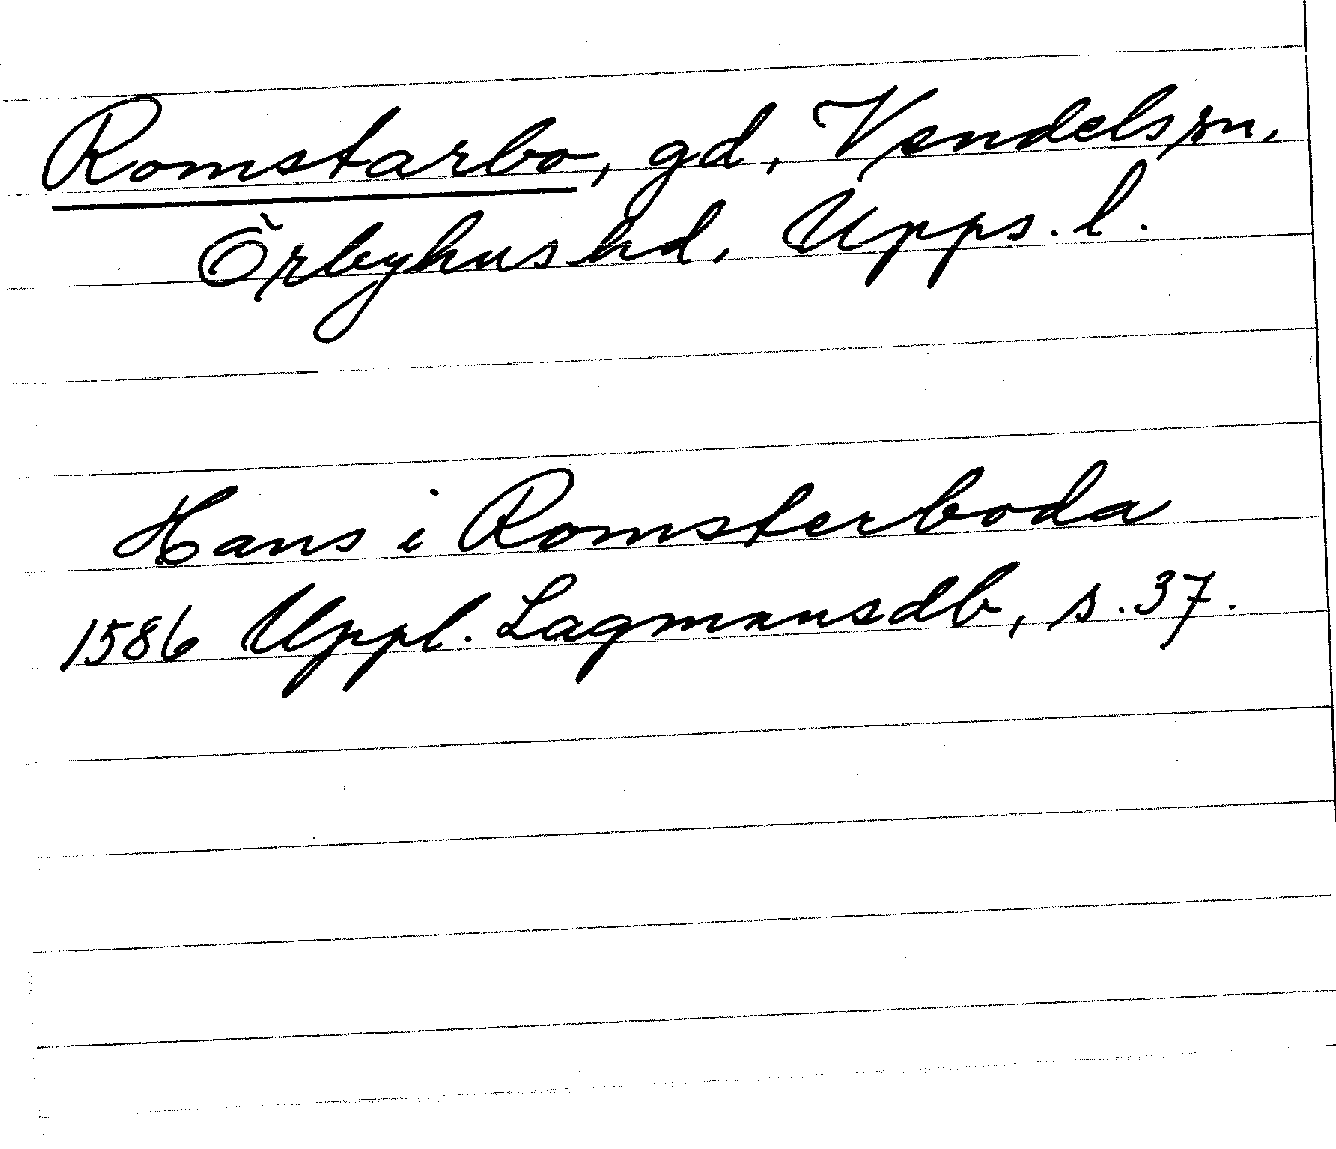 Romstarbo, gd, Vendels sn,
Örbyhus hd, Upps. l.
Hans i Romsterboda
1586 Uppl. Lagmansdb, s. 37.